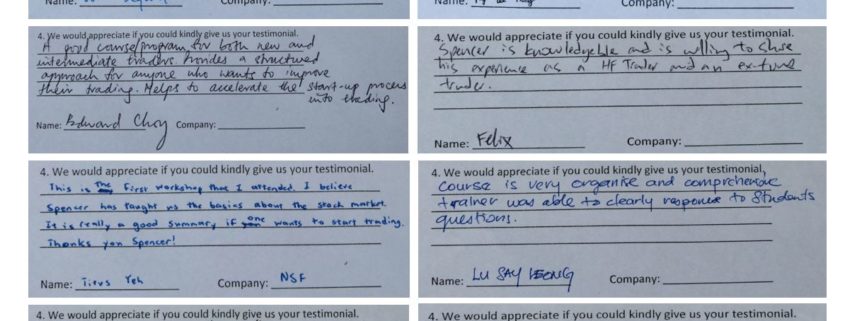 Name: Company:
Name: Company:
4. We would appreciate if you could kindly give us your testimonial.
A good course/program for both new and
intermediate traders. Provides a structured
approach for anyone who wants to improve
their trading. Helps to accelerate the start-up process
into trading.
Name: Edward Choy Company:
4. We would appreciate if you could kindly give us your testimonial.
Spencer is knowledgeable and is willing to share
his experience as a HF Trader and an ex-fund
trader.
Name: Felix Company:
4. We would appreciate if you could kindly give us your testimonial.
This is the First workshop that I attended. I believe
Spencer has taught us the basics about the stock market.
It is really a good summary if one wants to start trading.
Thanks you Spencer!
Name: Titus Yeh Company: NSF
4. We would appreciate if you could kindly give us your testimonial,
course is very organise and comprehensive
trainer was able to clearly response to students
questions.
Name: LU SAY LEONG Company:
4. We would appreciate if you could kindly give us your testimonial.
4. We would appreciate if you could kindly give us your testimonial.